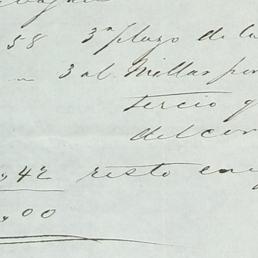 58 3ª plazo de la
3 al. Millas por
tercio
del con
,42 resto en
,00